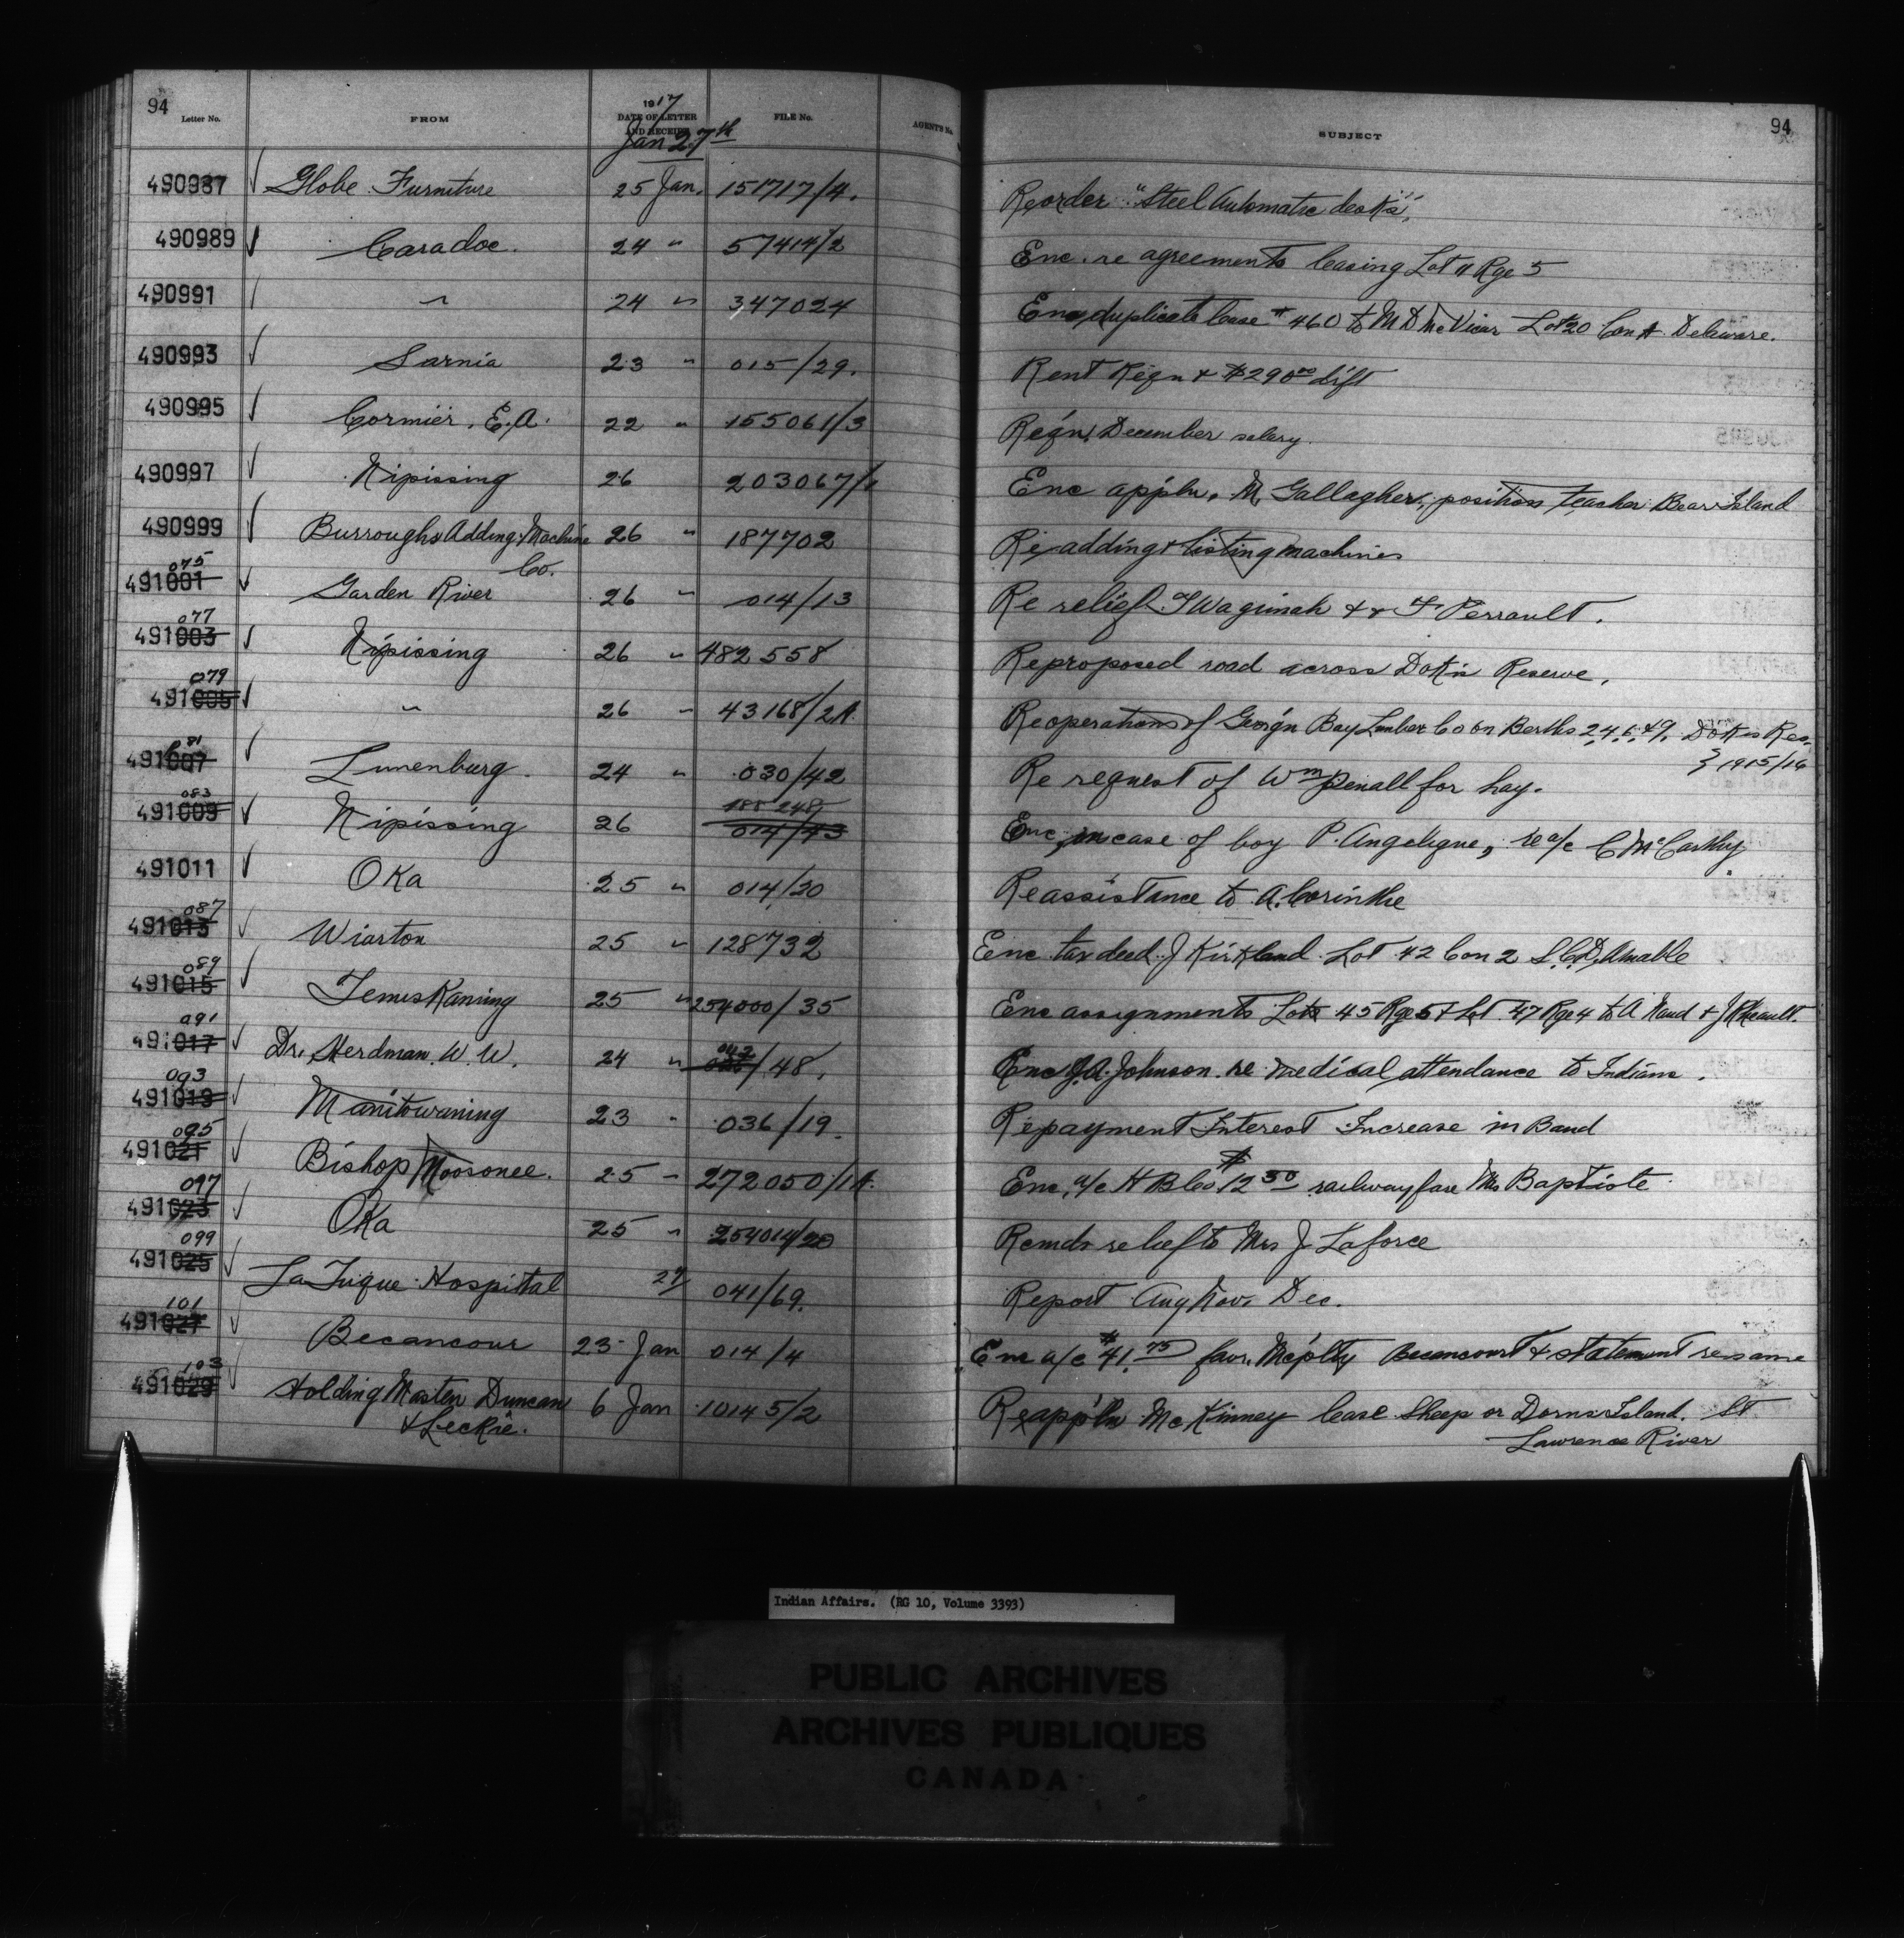 94
Letter No. FROM 1917 DATE OF LETTER AND RECEIPT FILE No. AGENT'S No. SUBJECT 94
Jan 27th
490987 Globe Furniture 25 Jan. 151717/4. Re order "Steel Automatic desks"
490989 Caradoc. 24 " 57414/2 Enc. re agreements leasing Lot 11 Rge 5
490991 " 24 " 347024 Enc duplicate lease # 460 to M D McVicar Lot 20 Con A Delaware.
490993 Sarnia 23 " 015/29. Rent Reqn + $290 00 dift
490995 Cormier, E.A. 22 " 155061/3 Reqn. December salary.
490997 Nipissing 26 203067/ Enc appln. M. Gallagher, position teacher Bear Island
490999 Burroughs Adding Machine 26 " 187702 Re adding + listing machines
Co.
075
491001 Garden River 26 " 014/13 Re relief J Wagimah + F Perrault.
077
491003 Nipissing 26 " 482558 Re proposed road across Dokis Reserve.
079
491005 " 26 " 43168/2A. Re operations of Georg'n Bay Lumber Co on Berths 2,4,6,+9. Dokis Res.
1915/16
081
491007 Lunenburg. 24 " 030/42 Re request of Wm Penall for hay.
083 188248
491009 Nipissing 26 014/43 Enc in case of boy P. Angeligue, re a/c C McCarthy
491011 Oka 25 " 014/20 Re assistance to A. Corinthe
087
491013 Wiarton 25 " 128732 Enc tax deed. J Kirkland Lot 42 Con 2 S.C.D, Amable
089
491015 Temiskaming 25 " 254000/35 Enc assignments Lots 45 Rge 5 + Lot 47 Rge 4 to A Naud + J Rheault.
091 042
491017 Dr. Herdman W. W. 24 " /48. Enc J.A. Johnson re medical attendance to Indians.
093
491019 Manitowaning 23 " 036/19. Re payment Interest Increase in Band
095
491021 Bishop Moosonee. 25 " 272050/1A. Enc, a/c H B Co $12 50 railway fare Mrs Baptiste
097
491023 Oka 25 " 254014/20 Remds relief to Mrs J Laforce
099
491025 La Tuque Hospital 27 041/69. Report Aug Nov. Dec.
101
491027 Becancour 23 Jan 014/4 Enc a/c $41.75 favr. Mc'plty Becancourt + statement re same
103
491029 Holding Masten Duncan 6 Jan 10145/2 Re appln McKinney lease Sheep or Dorns Island. St
+ Leckie. Lawrence River
Indian Affairs. (RG 10, Volume 3393)
PUBLIC ARCHIVES
ARCHIVES PUBLIQUES
CANADA